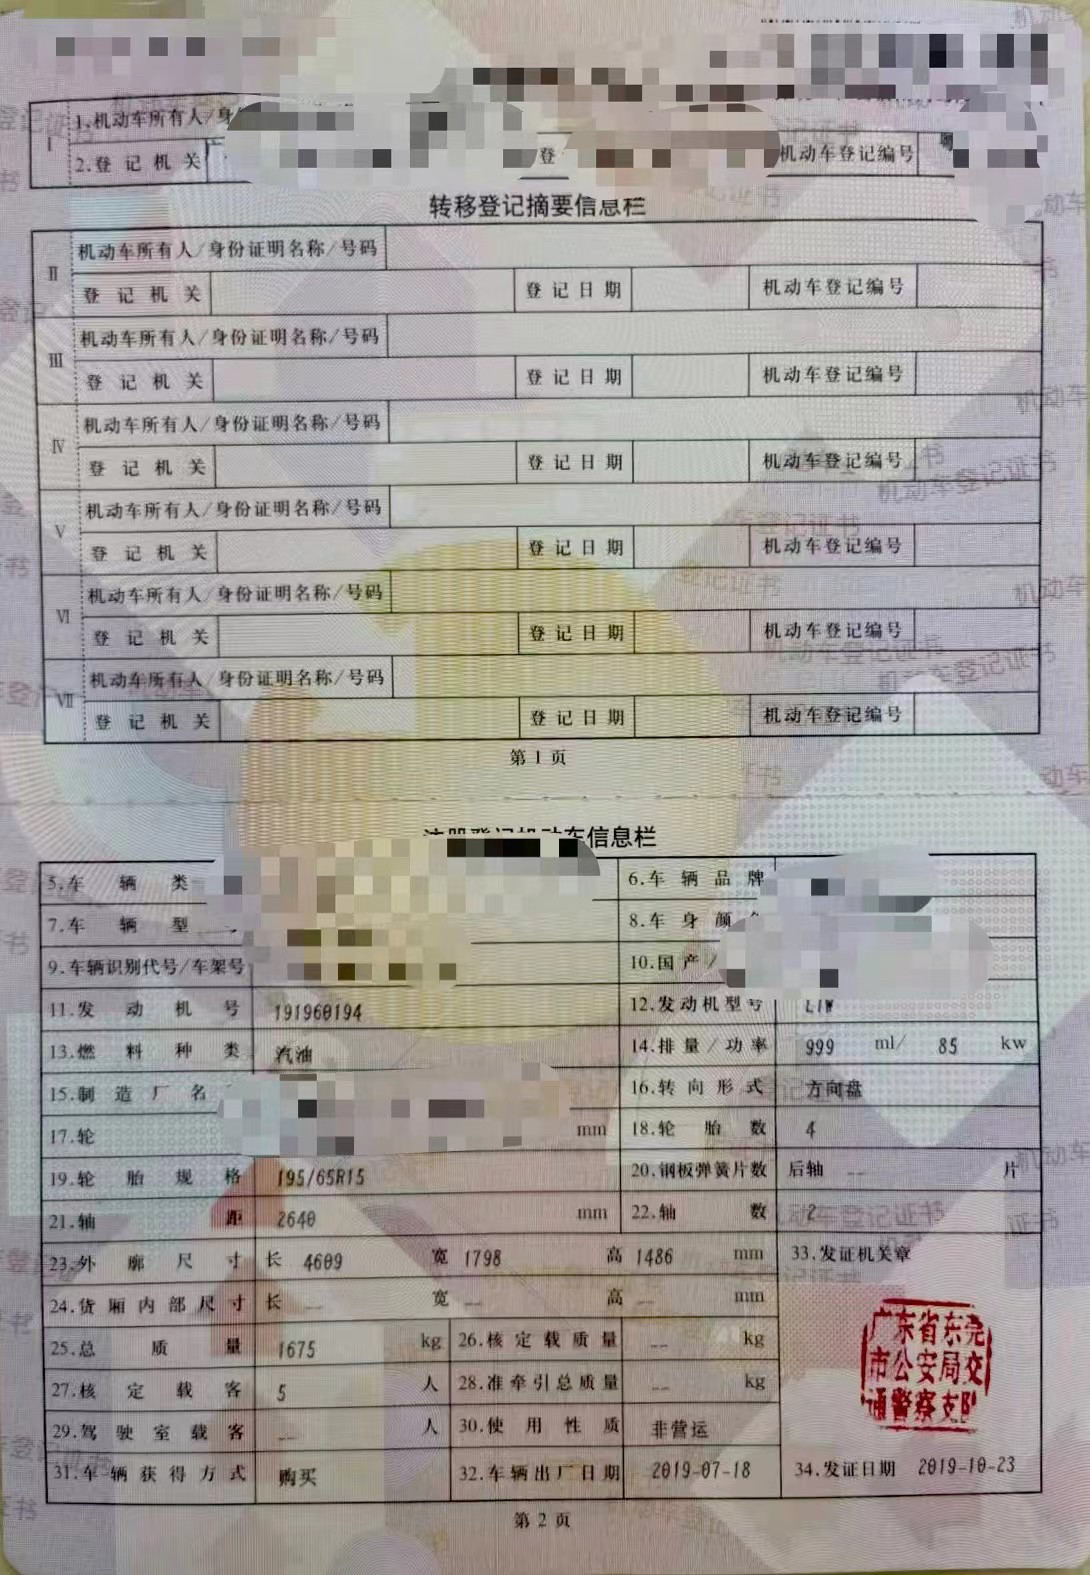 1.机动车所有人/身
Ⅰ
2.登记机关
登
机动车登记编号 粤
转移登记摘要信息栏
Ⅱ
机动车所有人/身份证明名称/号码
登记机关 登记日期 机动车登记编号
Ⅲ
机动车所有人/身份证明名称/号码
登记机关 登记日期 机动车登记编号
Ⅳ
机动车所有人/身份证明名称/号码
登记机关 登记日期 机动车登记编号
Ⅴ
机动车所有人/身份证明名称/号码
登记机关 登记日期 机动车登记编号
Ⅵ
机动车所有人/身份证明名称/号码
登记机关 登记日期 机动车登记编号
Ⅶ
机动车所有人/身份证明名称/号码
登记机关 登记日期 机动车登记编号
第1页
注册登记机动车信息栏
5.车辆类 6.车辆品牌
7.车辆型 8.车身颜色
9.车辆识别代号/车架号 10.国产/
11.发动机号 191960194 12.发动机型号 LIW
13.燃料种类 汽油 14.排量/功率 999 ml/ 85 kw
15.制造厂名 16.转向形式 方向盘
17.轮 mm 18.轮胎数 4
19.轮胎规格 195/65R15 20.钢板弹簧片数 后轴 -- 片
21.轴距 2640 mm 22.轴数 2
23.外廓尺寸 长 4609 宽 1798 高 1486 mm 33.发证机关章
24.货厢内部尺寸 长 -- 宽 -- 高 -- mm
25.总质量 1675 kg 26.核定载质量 -- kg
27.核定载客 5 人 28.准牵引总质量 -- kg
29.驾驶室载客 -- 人 30.使用性质 非营运
31.车辆获得方式 购买 32.车辆出厂日期 2019-07-18 34.发证日期 2019-10-23
广东省东莞
市公安局交
通警察支队
第2页